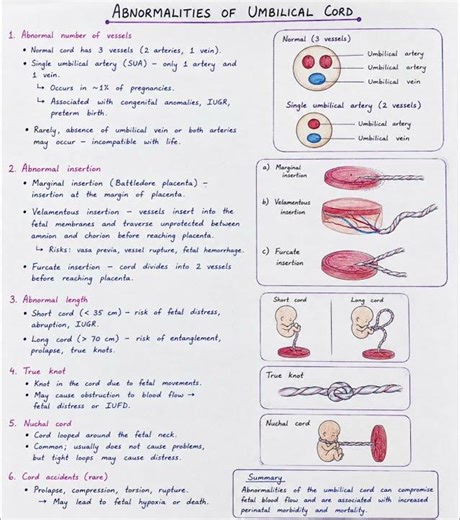 ABNORMALITIES OF UMBILICAL CORD
1. Abnormal number of vessels
• Normal cord has 3 vessels (2 arteries, 1 vein).
• Single umbilical artery (SUA) – only 1 artery and
1 vein.
↳ Occurs in ~1% of pregnancies.
↳ Associated with congenital anomalies, IUGR,
preterm birth.
• Rarely, absence of umbilical vein or both arteries
may occur – incompatible with life.
Normal (3 vessels)
Umbilical artery
Umbilical artery
Umbilical vein
Single umbilical artery (2 vessels)
Umbilical artery
Umbilical vein
2. Abnormal insertion
• Marginal insertion (Battledore placenta) –
insertion at the margin of placenta.
• Velamentous insertion – vessels insert into the
fetal membranes and traverse unprotected between
amnion and chorion before reaching placenta.
↳ Risks: vasa previa, vessel rupture, fetal hemorrhage.
• Furcate insertion – cord divides into 2 vessels
before reaching placenta.
a) Marginal
insertion
b) Velamentous
insertion
c) Furcate
insertion
3. Abnormal length
• Short cord (< 35 cm) – risk of fetal distress,
abruption, IUGR.
• Long cord (> 70 cm) – risk of entanglement,
prolapse, true knots.
Short cord
Long cord
4. True knot
• Knot in the cord due to fetal movements.
• May cause obstruction to blood flow →
fetal distress or IUFD.
True knot
5. Nuchal cord
• Cord looped around the fetal neck.
• Common; usually does not cause problems,
but tight loops may cause distress.
Nuchal cord
6. Cord accidents (rare)
• Prolapse, compression, torsion, rupture.
→ May lead to fetal hypoxia or death.
Summary
Abnormalities of the umbilical cord can compromise
fetal blood flow and are associated with increased
perinatal morbidity and mortality.